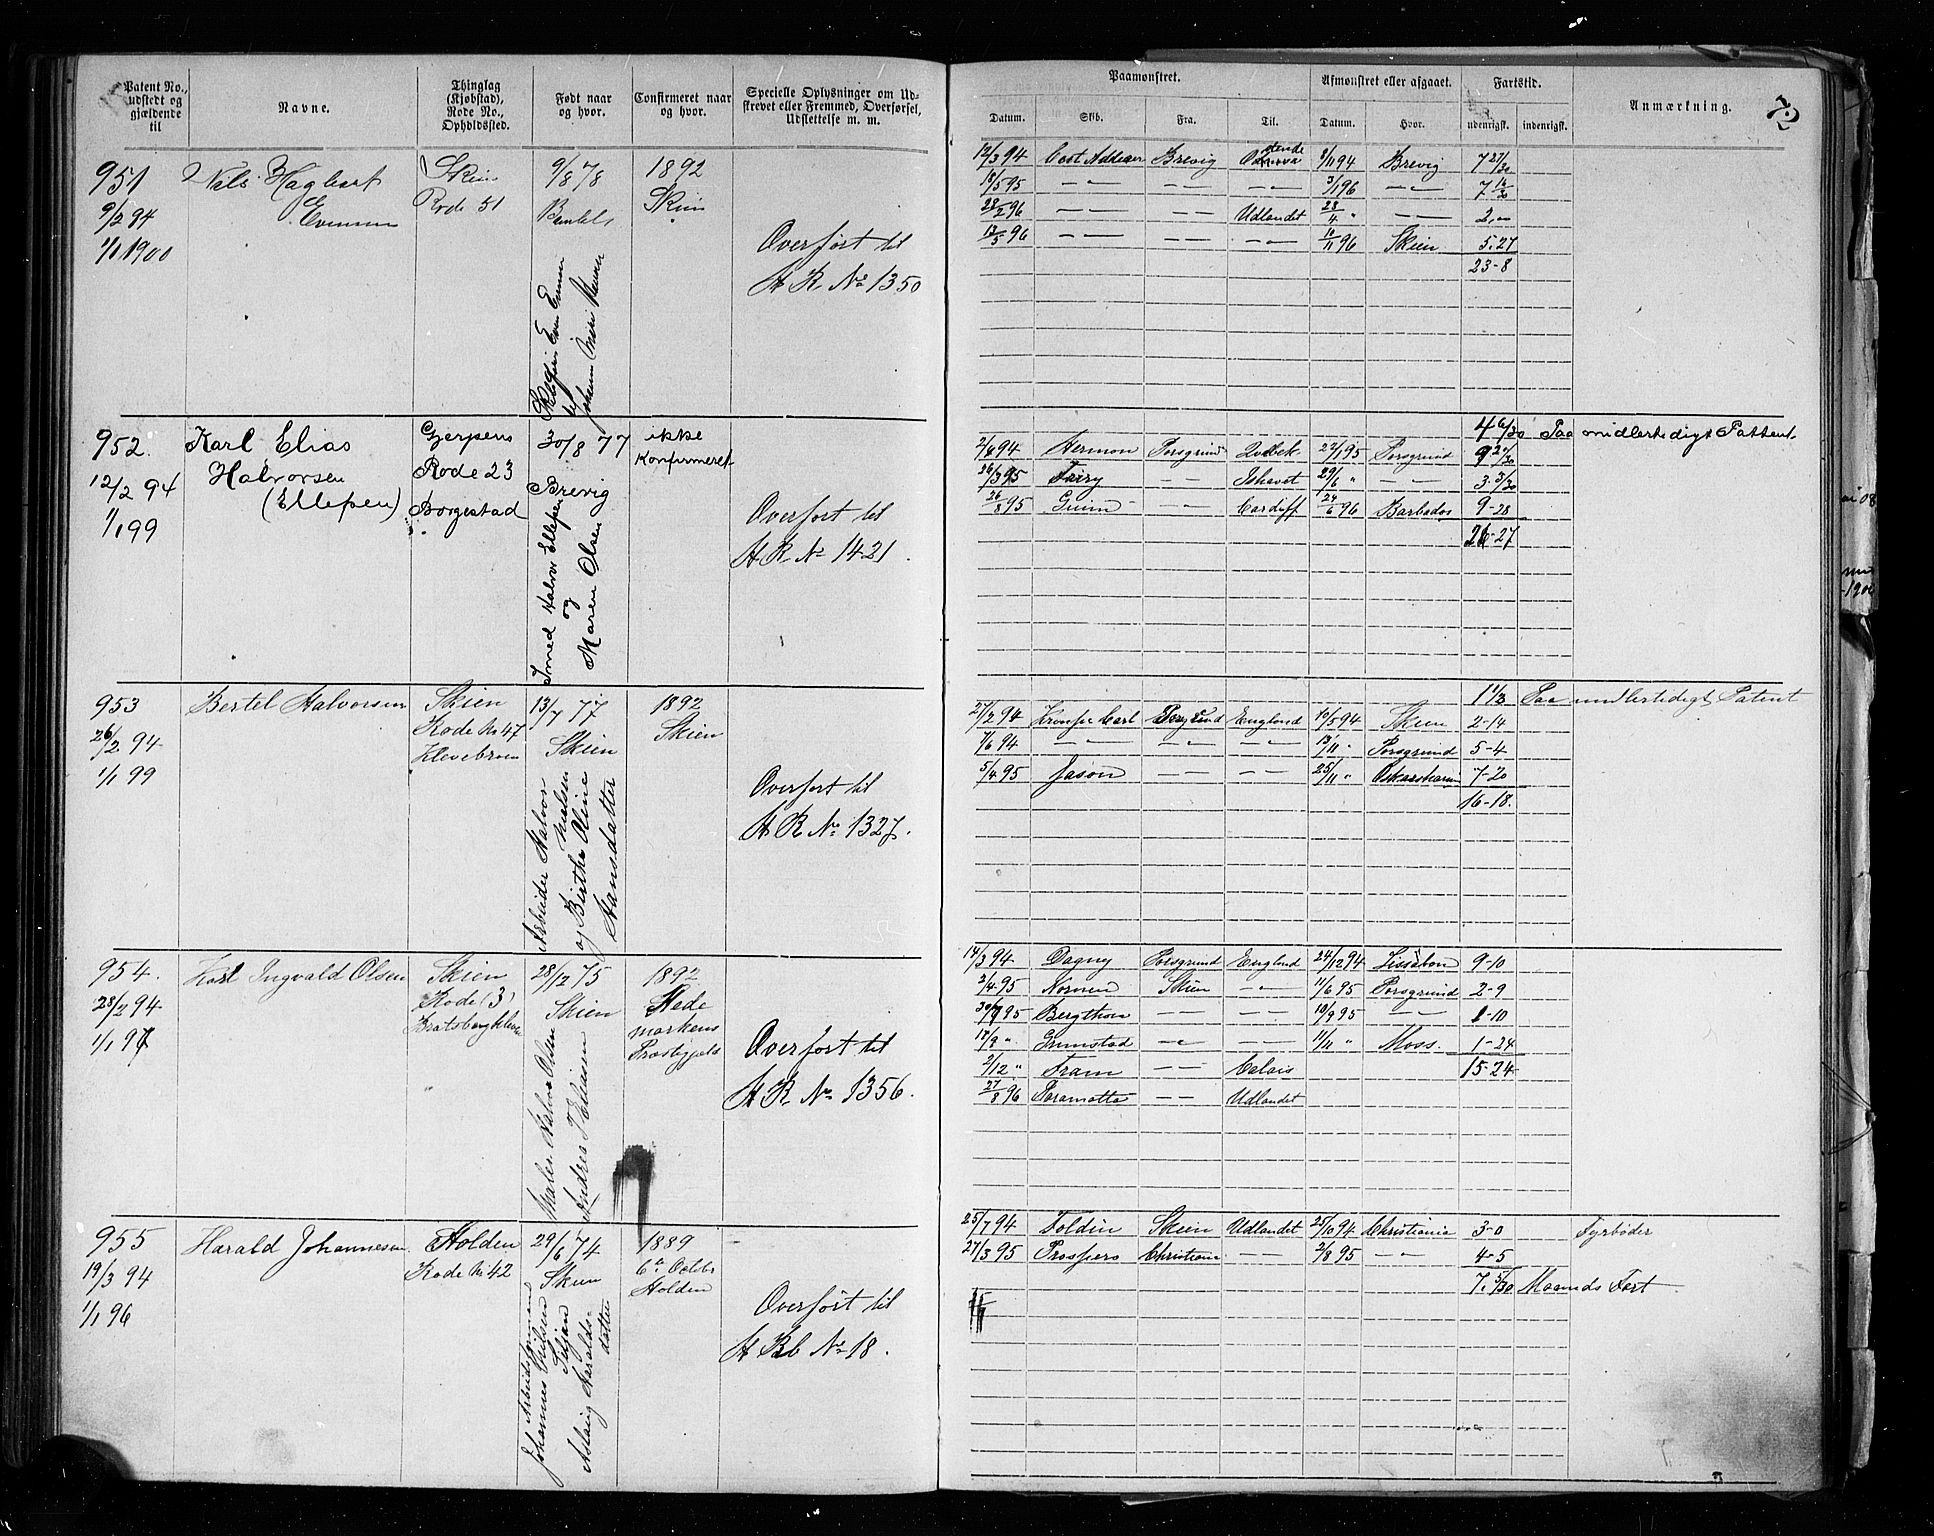 Patent No., udstedt og gjældende til
Navne.
Thinglag (Kjøbstad), Rode No., Opholdssted.
Født naar og hvor.
Confirmeret naar og hvor.
Specielle Oplysninger om Udskrevet eller Fremmed, Overførsel, Udslettelse m. m.
Paamønstret.
Afmønstret eller afgaaet.
Fartstid.
Anmærkning.
Datum. Skib. Fra. Til. Datum. Hvor. udenrigst. indenrigst.
951
9/2 94
1/1 1900
Nils Hagbart
Evensen
Skien
Rode 51
9/8 78
1892
Skien
Overført til
A R No 1350
12/3 94 Brevig 8/11 94 Brevig 7 27/30
18/5 95 — — — — 3/1 96 — — 7 14/30
28/2 96 — — — — Udlandet 28/4 " — — 2,00
13/5 96 — — — — — — 10/11 96 Skien 5.27
23-8
952.
12/2 94
1/1 99
Karl Elias
Halvorsen
(Ellefsen)
Gjerpens
Rode 23
Borgestad
30/8 77
Brevig
Smed Halvor Ellefsen
og
Maren Olsen
ikke
Konfirmeret
Overført til
A R No 1421.
4 6/30 Paa midlertidigt Pattent
2/4 94 Hermon Porsgrund 22/1 95 Porsgrund 9 20/30
26/3 95 Fairy — — Ishavet 29/6 " — — 3 3/30
26/8 95 — — Cardiff 24/6 96 Barbados 9-28
26-27
953
26/2 94
1/1 99
Bertel Halvorsen
Skien
Rode No 47
Klevebroen
13/7 77
Skien
Arbeider Halvor
Nielsen
og Birthe Oline
Hansdatter
1892
Skien
Overført til
A R No 1327.
1 1/3 Paa midlertidigt Patent
27/2 94 England 10/5 94 Skien 2-14
7/6 94 — — — — — — 13/11 " Porsgrund 5-4
5/4 95 Jason — — — — 25/11 " 7-20
16-18.
954.
28/2 94
1/1 97
Karl Ingvald Olsen
Skien
Rode (3)
Bratsbergkleven
28/12 75
Skien
Maler Halvor Olsen
Andrea Eliasen
1892
Hede
markens
Overført til
A R No 1356.
14/3 94 Dagny Porsgrund England 24/12 94 Lissabon 9-10
2/4 95 Nornen Skien — — 11/6 95 Porsgrund 2-9
30/7 95 Bergthora — — 10/9 95 — — 1-10
17/9 " Grimstad — — 11/11 " Moss. 1-24
2/12 " Fram — — Calais 15-24
27/8 96 Paramatta — — Udlandet
955
19/3 94
1/1 96
Harald Johannesen
Holden
Rode No 42
29/6 74
Skien
Arbeidsformand
Johannes
Seljan
Aslaug Haralds-
datter
1889
6te Octbr
Holden
Overført til
A Bb No 18.
25/7 94 Foldin Skien Udlandet 25/10 94 Christiania 3-0 Fyrbøder
27/3 95 Prospero Christiania — — 2/8 95 — — 4-5
7. 5/30 Maaneds Fart